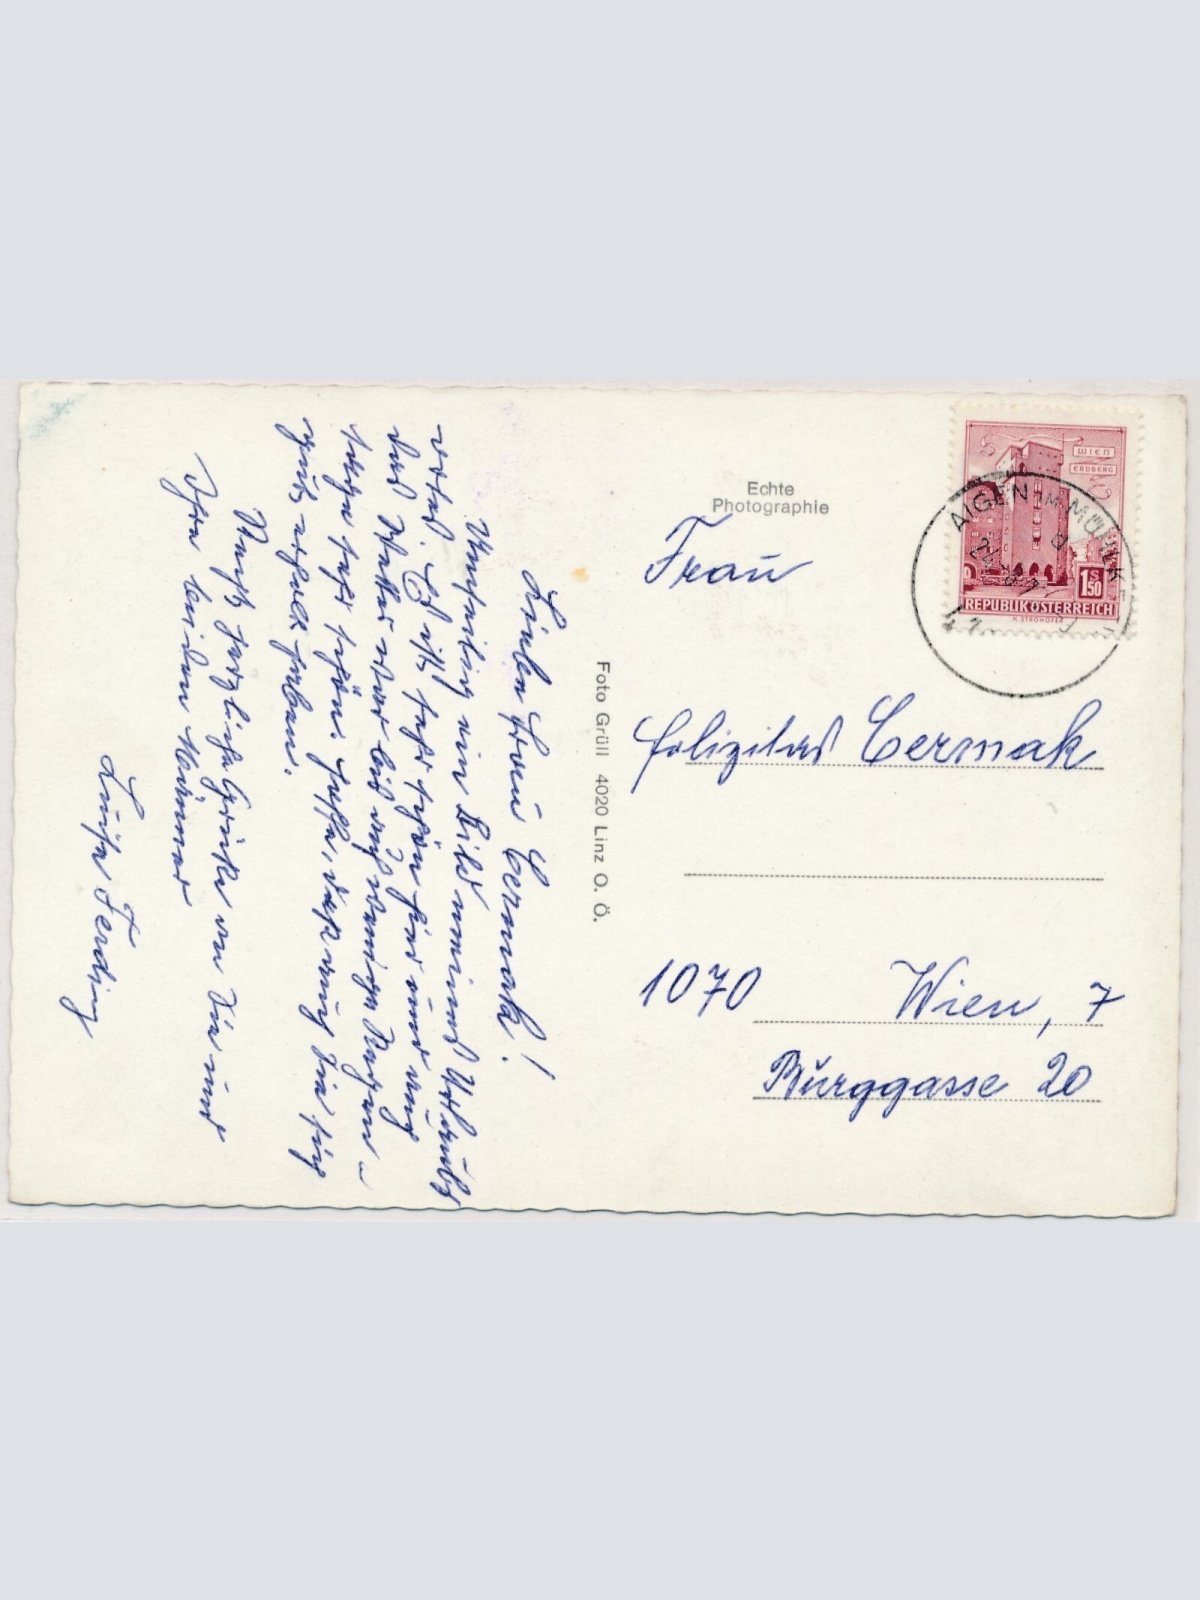 Liebe Frau Cermak!
Umseitig ein Bild meines Urlaubs-
ortes. Es ist sehr schön hier und auch
das Wetter war bis auf wenige Regen-
tage sehr schön. Hoffe, daß auch Sie sich
gut erholt haben.
Recht herzliche Grüße an Sie und
Ihre beiden Männer
Luise
Echte
Photographie
Foto Grüll 4020 Linz O. Ö.
WIEN
ERDBERG
S
1.50
REPUBLIK ÖSTERREICH
H. STROHOFER
AIGEN IM MÜHLK
Frau
Felizitas Cermak
1070 Wien, 7
Burggasse 20